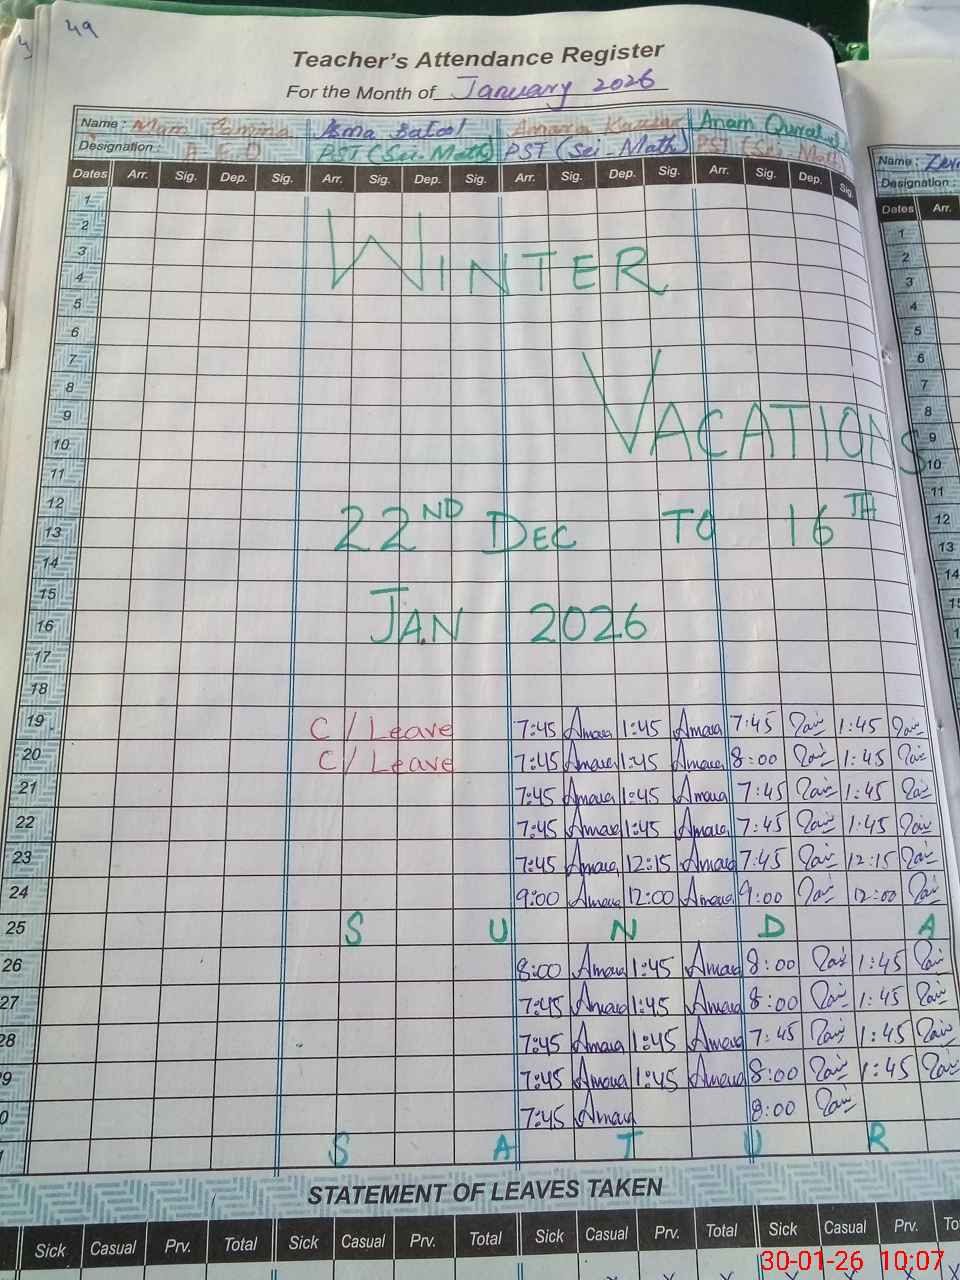 49
Teacher's Attendance Register
For the Month of January 2026
Name : Mam Asma Batool Amara Anam
Designation : A E O PST (Sci-Math) PST (Sci-Math) PST (Sci-Math)
Dates Arr. Sig. Dep. Sig. Arr. Sig. Dep. Sig. Arr. Sig. Dep. Sig. Arr. Sig. Dep. Sig.
1
2
3
4
5
6
7
8
9
10
11
12
13
14
15
16
17
18
WINTER
VACATIONS
22ND DEC TO 16TH
JAN 2026
19 C / Leave 7:45 Amara 1:45 Amara 7:45 1:45
20 C / Leave 7:45 Amara 1:45 Amara 8:00 1:45
21 7:45 Amara 1:45 Amara 7:45 1:45
22 7:45 Amara 1:45 Amara 7:45 1:45
23 7:45 Amara 12:15 Amara 7:45 12:15
24 9:00 Amara 12:00 Amara 9:00 12:00
25 S U N D A
26 8:00 Amara 1:45 Amara 8:00 1:45
27 7:45 Amara 1:45 Amara 8:00 1:45
28 7:45 Amara 1:45 Amara 7:45 1:45
9 7:45 Amara 1:45 Amara 8:00 1:45
0 7:45 Amara 8:00
S A T U R
STATEMENT OF LEAVES TAKEN
Sick Casual Prv. Total Sick Casual Prv. Total Sick Casual Prv. Total Sick Casual Prv. To
Name :
Designation :
Dates Arr.
1
2
3
4
5
6
7
8
9
10
11
12
13
14
30-01-26 10:07